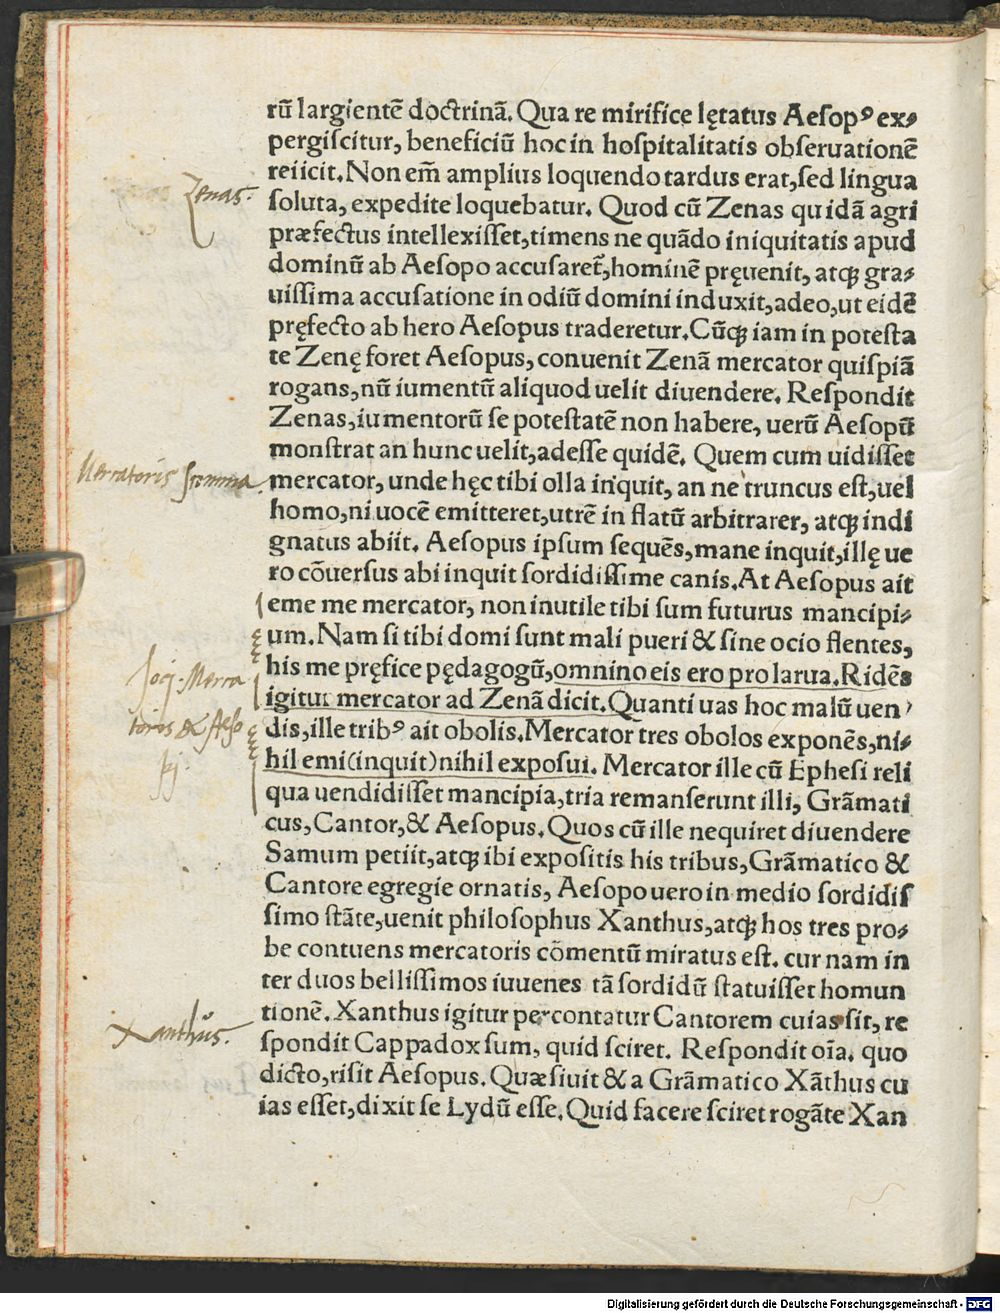 rū largientē doctrinã. Qua re mirifice lętatus Aeſopꝰ ex⸗
pergiſcitur, beneficiū hoc in hoſpitalitatis obſeruationē
reiicit. Non em̄ amplius loquendo tardus erat, ſed lingua
Zenas.
ſoluta, expedite loquebatur. Quod cū Zenas quidã agri
præfectus intellexiſſet, timens ne quãdo iniquitatis apud
dominū ab Aeſopo accuſaret̃, hominē pręuenit, atqꝫ gra⸗
uiſſima accuſatione in odiū domini induxit, adeo, ut eidē
pręfecto ab hero Aeſopus traderetur. Cūqꝫ iam in poteſta
te Zenę foret Aeſopus, conuenit Zenã mercator quiſpiã
rogans, nū iumentū aliquod uelit diuendere. Reſpondit
Zenas, iumentorū ſe poteſtatē non habere, uerū Aeſopū
monſtrat an hunc uelit, adeſſe quidē. Quem cum uidiſſet
Mercatoris
mercator, unde hęc tibi olla inquit, an ne truncus eſt, uel
homo, ni uocē emitteret, utrē in flatū arbitrarer, atqꝫ indi
gnatus abiit. Aeſopus ipſum ſequēs, mane inquit, illę ue
ro cōuerſus abi inquit ſordidiſſime canis. At Aeſopus ait
eme me mercator, non inutile tibi ſum futurus mancipi⸗
um. Nam ſi tibi domi ſunt mali pueri & ſine ocio flentes,
his me pręfice pędagogū, omnino eis ero pro larua. Ridēs
Jocj. Merca
toris & Aeſo
pj.
igitur mercator ad Zenã dicit. Quanti uas hoc malū uen
dis, ille tribꝰ ait obolis. Mercator tres obolos exponēs, ni⸗
hil emi (inquit) nihil expoſui. Mercator ille cū Epheſi reli
qua uendidiſſet mancipia, tria remanſerunt illi, Grãmati
cus, Cantor, & Aeſopus. Quos cū ille nequiret diuendere
Samum petiit, atqꝫ ibi expoſitis his tribus, Grãmatico &
Cantore egregie ornatis, Aeſopo uero in medio ſordidiſ
ſimo ſtãte, uenit philoſophus Xanthus, atqꝫ hos tres pro⸗
be contuens mercatoris cōmentū miratus eſt. cur nam in
ter duos belliſſimos iuuenes tã ſordidū ſtatuiſſet homun
Xanthus.
tionē. Xanthus igitur percontatur Cantorem cuias ſit, re
ſpondit Cappadox ſum, quid ſciret. Reſpondit oīa. quo
dicto, riſit Aeſopus. Quæſiuit & a Grãmatico Xãthus cu
ias eſſet, dixit ſe Lydū eſſe. Quid facere ſciret rogãte Xan
Digitalisierung gefördert durch die Deutsche Forschungsgemeinschaft - DFG